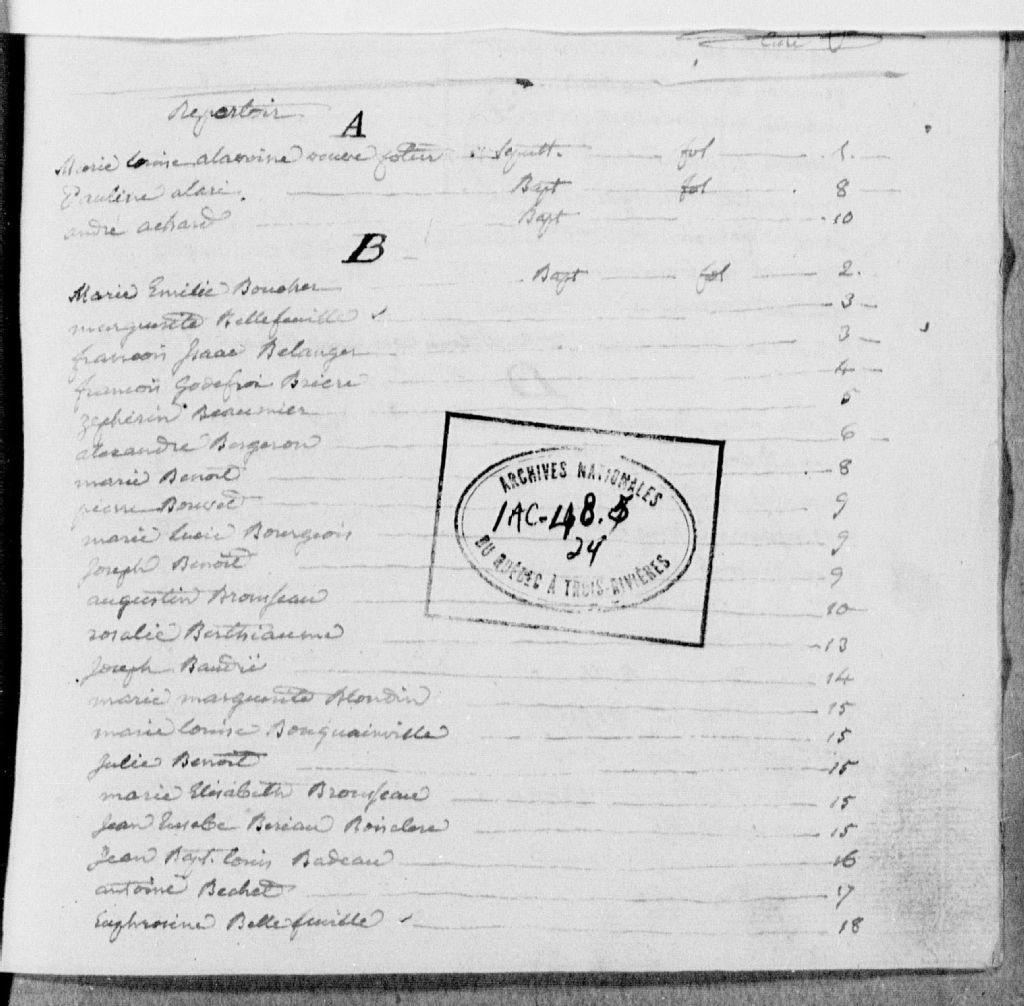 Curé
Repertoir
A
Marie Louise alavoine veuve Sepult. fol 1.
Pauline alari. Bapt fol 8
andré achard Bapt 10
B
Marie Emilie Boucher Bapt fol 2.
marguerite Bellefeuille 3
francois Isaac Belanger 3
francois Godefroi Briere 4
zepherin Beaumier 5
alexandre Bergeron 6
marie Benoit 8
pierre Bouvet 9
marie Lucie Bourgeois 9
Joseph Benoit 9
augustin Brousseau 10
rosalie Berthiaume 13
Joseph Baudri 14
marie marguerite Blondin 15
marie Louise Bouguainville 15
Julie Benoit 15
marie Elisabeth Brousseau 15
Jean Eusebe Beriau Boisclere 15
Jean Bapt. Louis Badeau 16
antoine Bechet 17
Euphrosine Bellefeuille 18
ARCHIVES NATIONALES
1AC-48.5
24
DU QUÉBEC À TROIS-RIVIÈRES